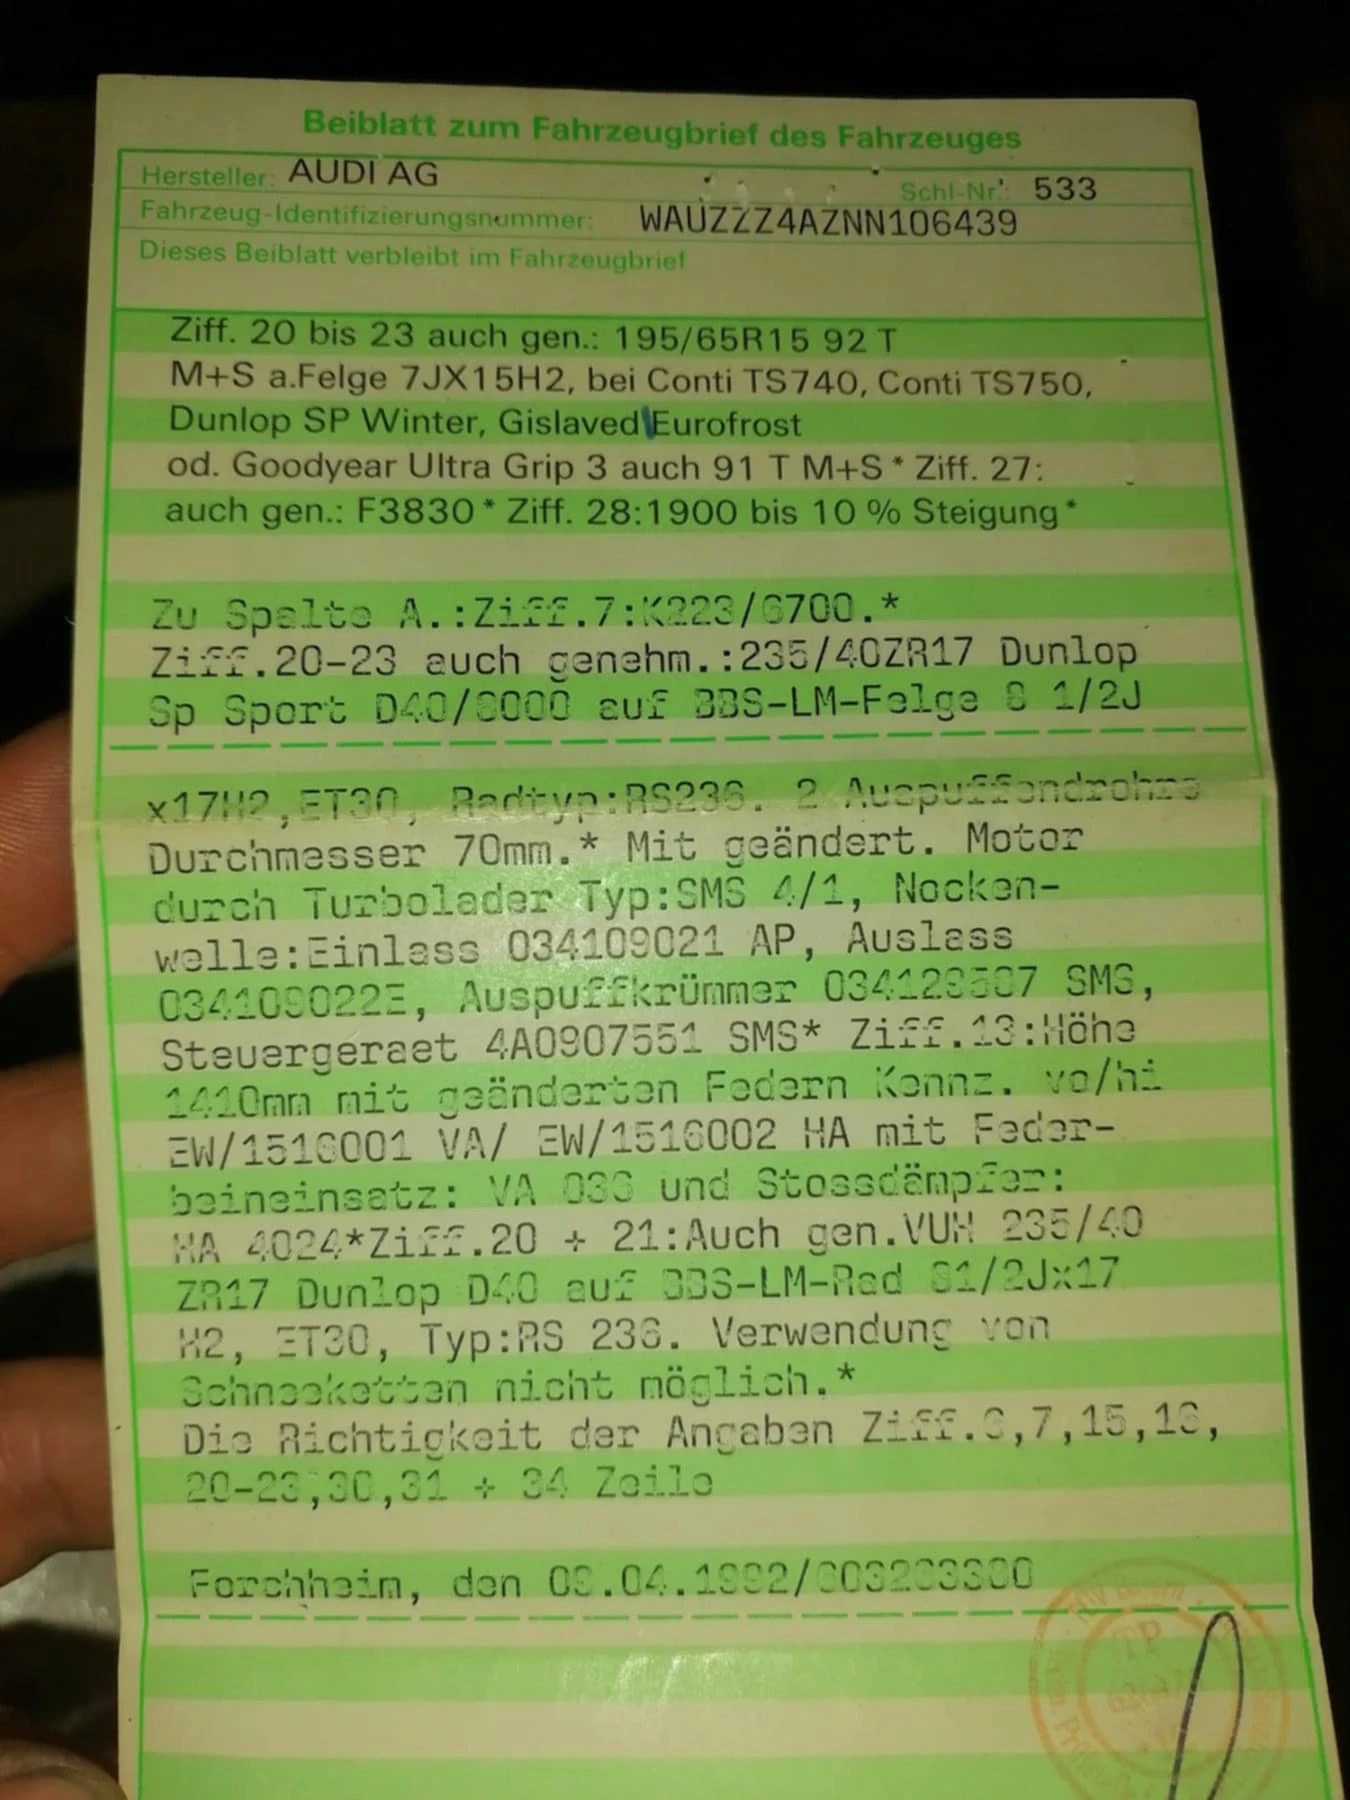 Beiblatt zum Fahrzeugbrief des Fahrzeuges
Hersteller: AUDI AG Schl-Nr.: 533
Fahrzeug-Identifizierungsnummer: WAUZZZ4AZNN106439
Dieses Beiblatt verbleibt im Fahrzeugbrief
Ziff. 20 bis 23 auch gen.: 195/65R15 92 T
M+S a.Felge 7JX15H2, bei Conti TS740, Conti TS750,
Dunlop SP Winter, Gislaved Eurofrost
od. Goodyear Ultra Grip 3 auch 91 T M+S * Ziff. 27:
auch gen.: F3830 * Ziff. 28:1900 bis 10 % Steigung *
Zu Spalte A.:Ziff.7:K223/6700.*
Ziff.20-23 auch genehm.:235/40ZR17 Dunlop
Sp Sport D40/8000 auf BBS-LM-Felge 8 1/2J
x17H2,ET30, Radtyp:RS236. 2 Auspuffendrohre
Durchmesser 70mm.* Mit geändert. Motor
durch Turbolader Typ:SMS 4/1, Nocken-
welle:Einlass 034109021 AP, Auslass
034109022E, Auspuffkrümmer SMS,
Steuergeraet 4A0907551 SMS* Ziff.13:Höhe
1410mm mit geänderten Federn Kennz. vo/hi
EW/1516001 VA/ EW/1516002 HA mit Feder-
beineinsatz: VA 036 und Stossdämpfer:
HA 4024*Ziff.20 + 21:Auch gen.VUH 235/40
ZR17 Dunlop D40 auf BBS-LM-Rad 81/2Jx17
H2, ET30, Typ:RS 236. Verwendung von
Schneeketten nicht möglich.*
Die Richtigkeit der Angaben Ziff.6,7,15,16,
20-23,30,31 + 34 Zeile
Forchheim, den .04.1992/
TP